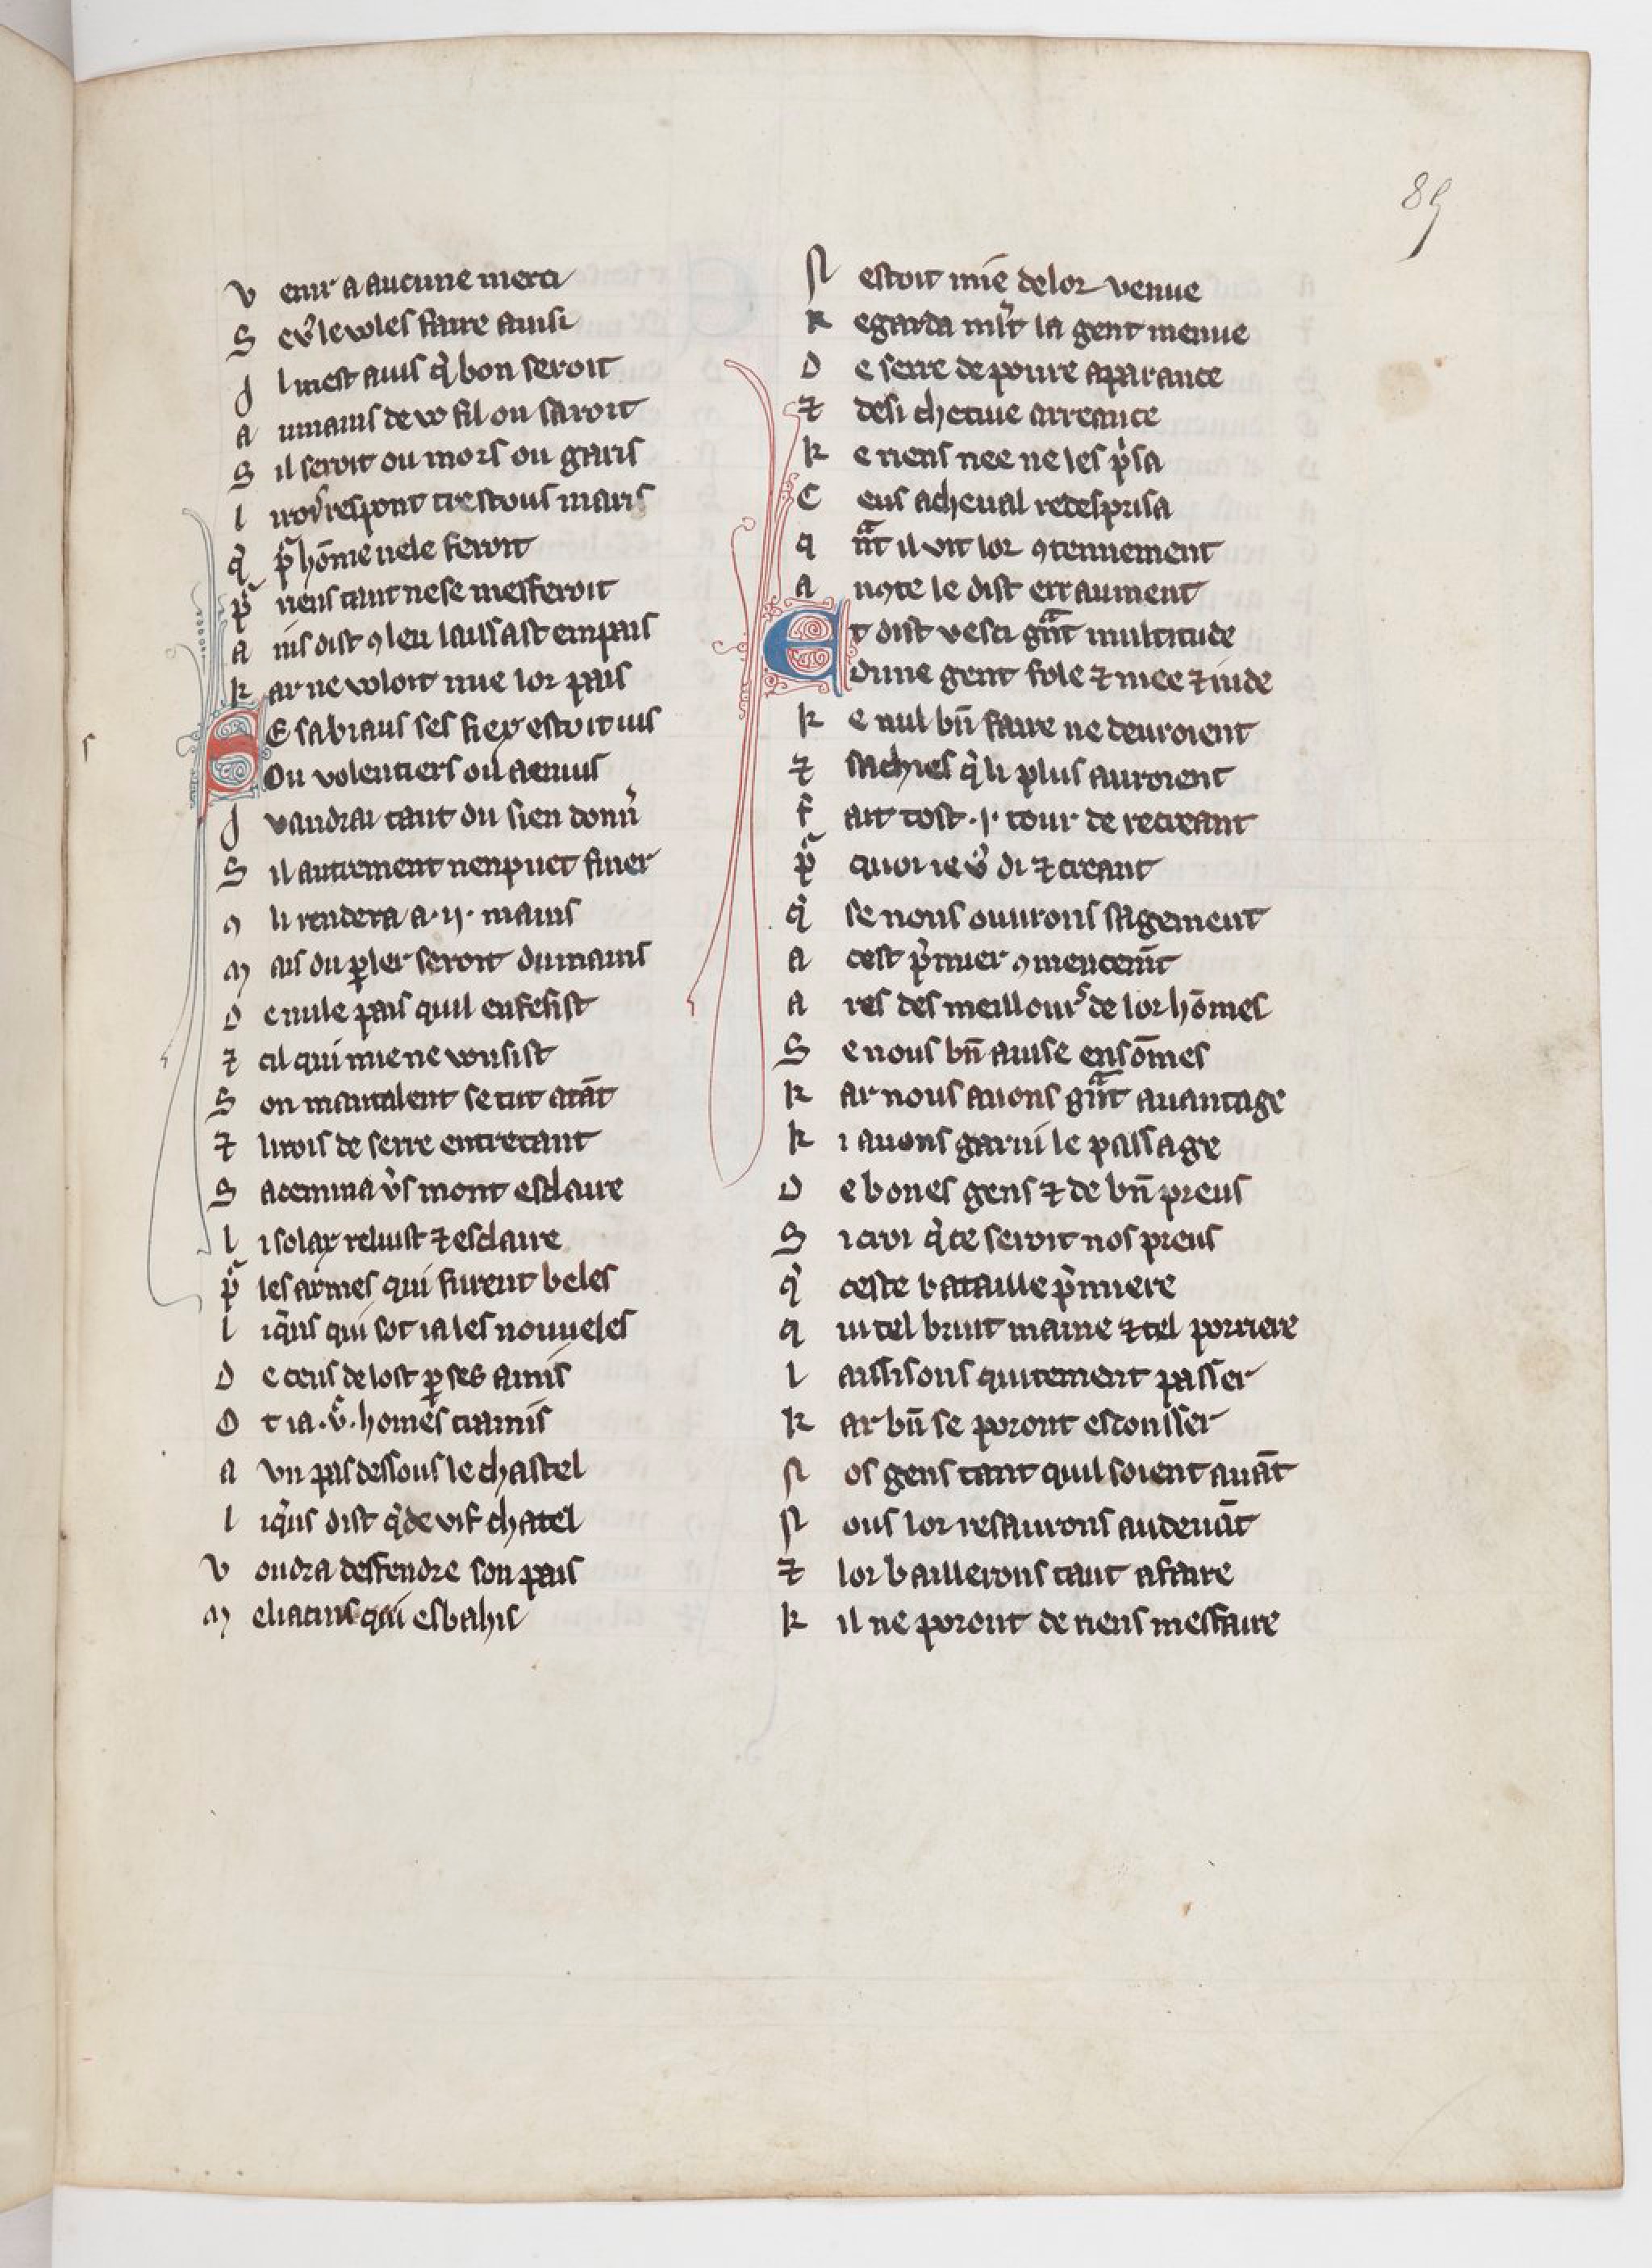 89
V enir a aucune merci
S evͦ le voles faire ausi
J l mest auis q̇ bon seroit
A umains de vo fil on saroit
S il seroit ou mors ou garis
L i rois respont trestous maris
q̇ pͬ home nele feroit
pͬ riens tant ne se mesferoit
A nis dist ꝯ leu laissast em pais
K ar ne voloit mie lor pais
SE sabiaus ses fiex estoit uis
Ou volentiers ou a enuis
J vaudrai tant du sien doner̃
S il autrement nen puet finer
ꝯ li rendera a .ij. mains
M ais du ꝑler seroit du mains
D e nule pais quil en fesist
⁊ cil qui mie ne vousist
S on mautalent se tut atãt
⁊ li rois de serre entretant
S acemina vˢ mont esclaire
L i solax reluist ⁊ esclaire
pͬ les armes qui furent beles
L i q̃ns qui sot ia les nouueles
D e ceus de lost ꝑ ses amis
O t ia .v̊. homes tramis
A vn pas dessous le chastel
L i q̃ns dist q̇ de vif chatel
V oudra desfendre son pais
M eliatins qui esbahis
N estoit miẽ de lor venue
R egarda ml̃t la gent menue
D e serre de poure aparance
⁊ de si chetiue arreance
K e riens nee ne les pͥsa
C eus a cheual redesprisa
q ᷓnt il vit lor ꝯtennement
A n ꝯte le dist erraument
Et dist vesci gᷓnt multitude
Dune gent fole ⁊ niee ⁊ rude
K e nul bñ faire ne deuroient
⁊ sachies q̇ li plus auroient
F ait tost .j. tour de recreant
pͬ quoi ie vͦ di ⁊ creant
q̇ se nous ouurons sagement
A cest pͥmier ꝯmencem̃t
A res des meillourˢ de lor hõmes
S e nous bñ auise en sõmes
K ar nous auons gᷓnt auantage
K i auons garni le passage
D e bones gens ⁊ de bñ preus
S i croi q̇ ce seroit nos preus
q̇ ceste bataille pͥmiere
q ui tel bruit maine ⁊ tel porriere
L aissisons quitement passer
K ar bñ se poront escousser
N os gens tant quil soient auãt
N ous lor resaurons au deuãt
⁊ lor baillerons tant a faire
K il ne poront de riens mesfaire